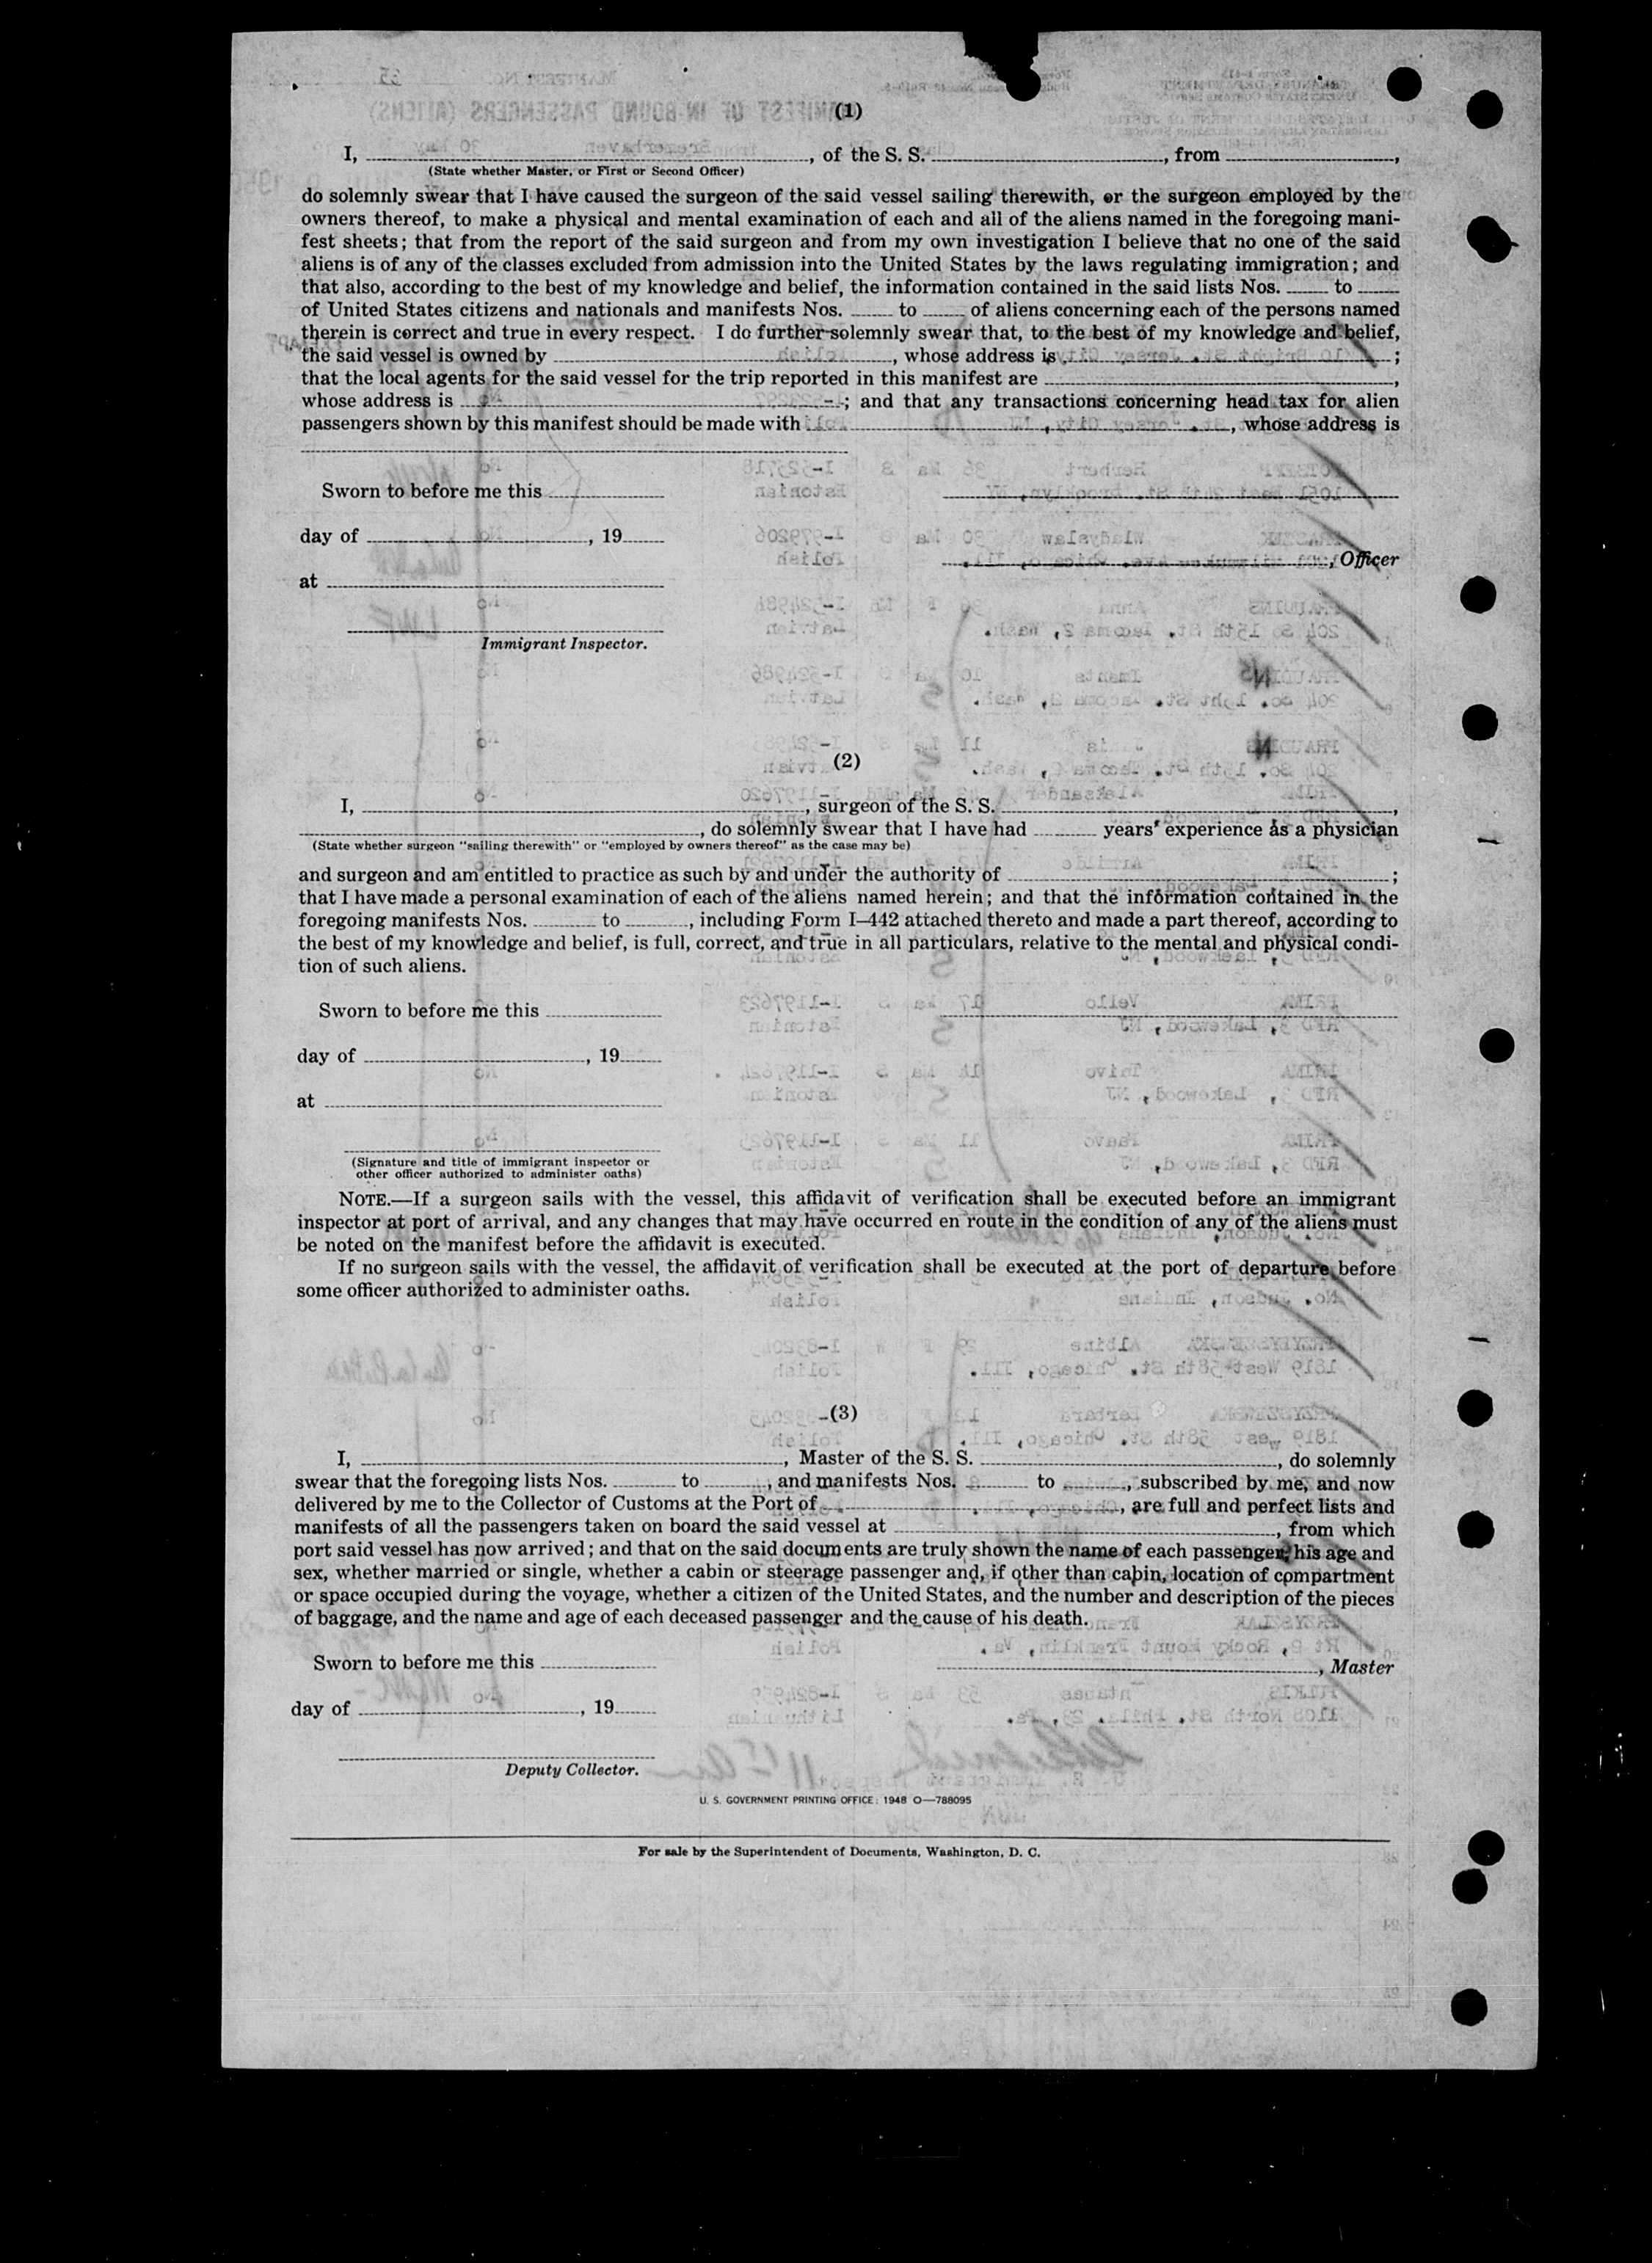 (1)
I, , of the S. S. , from ,
(State whether Master, or First or Second Officer)
do solemnly swear that I have caused the surgeon of the said vessel sailing therewith, or the surgeon employed by the
owners thereof, to make a physical and mental examination of each and all of the aliens named in the foregoing mani-
fest sheets; that from the report of the said surgeon and from my own investigation I believe that no one of the said
aliens is of any of the classes excluded from admission into the United States by the laws regulating immigration; and
that also, according to the best of my knowledge and belief, the information contained in the said lists Nos. to
of United States citizens and nationals and manifests Nos. to of aliens concerning each of the persons named
therein is correct and true in every respect. I do further solemnly swear that, to the best of my knowledge and belief,
the said vessel is owned by , whose address is ;
that the local agents for the said vessel for the trip reported in this manifest are ,
whose address is ; and that any transactions concerning head tax for alien
passengers shown by this manifest should be made with , whose address is
Sworn to before me this
day of , 19
, Officer
at
Immigrant Inspector.
(2)
I, , surgeon of the S. S. ,
, do solemnly swear that I have had years' experience as a physician
(State whether surgeon "sailing therewith" or "employed by owners thereof" as the case may be)
and surgeon and am entitled to practice as such by and under the authority of ;
that I have made a personal examination of each of the aliens named herein; and that the information contained in the
foregoing manifests Nos. to , including Form I–442 attached thereto and made a part thereof, according to
the best of my knowledge and belief, is full, correct, and true in all particulars, relative to the mental and physical condi-
tion of such aliens.
Sworn to before me this
day of , 19
at
(Signature and title of immigrant inspector or
other officer authorized to administer oaths)
NOTE.—If a surgeon sails with the vessel, this affidavit of verification shall be executed before an immigrant
inspector at port of arrival, and any changes that may have occurred en route in the condition of any of the aliens must
be noted on the manifest before the affidavit is executed.
If no surgeon sails with the vessel, the affidavit of verification shall be executed at the port of departure before
some officer authorized to administer oaths.
(3)
I, , Master of the S. S. , do solemnly
swear that the foregoing lists Nos. to , and manifests Nos. to , subscribed by me, and now
delivered by me to the Collector of Customs at the Port of , are full and perfect lists and
manifests of all the passengers taken on board the said vessel at , from which
port said vessel has now arrived; and that on the said documents are truly shown the name of each passenger, his age and
sex, whether married or single, whether a cabin or steerage passenger and, if other than cabin, location of compartment
or space occupied during the voyage, whether a citizen of the United States, and the number and description of the pieces
of baggage, and the name and age of each deceased passenger and the cause of his death.
Sworn to before me this
, Master
day of , 19
Deputy Collector.
U. S. GOVERNMENT PRINTING OFFICE: 1948 O—788095
For sale by the Superintendent of Documents, Washington, D. C.